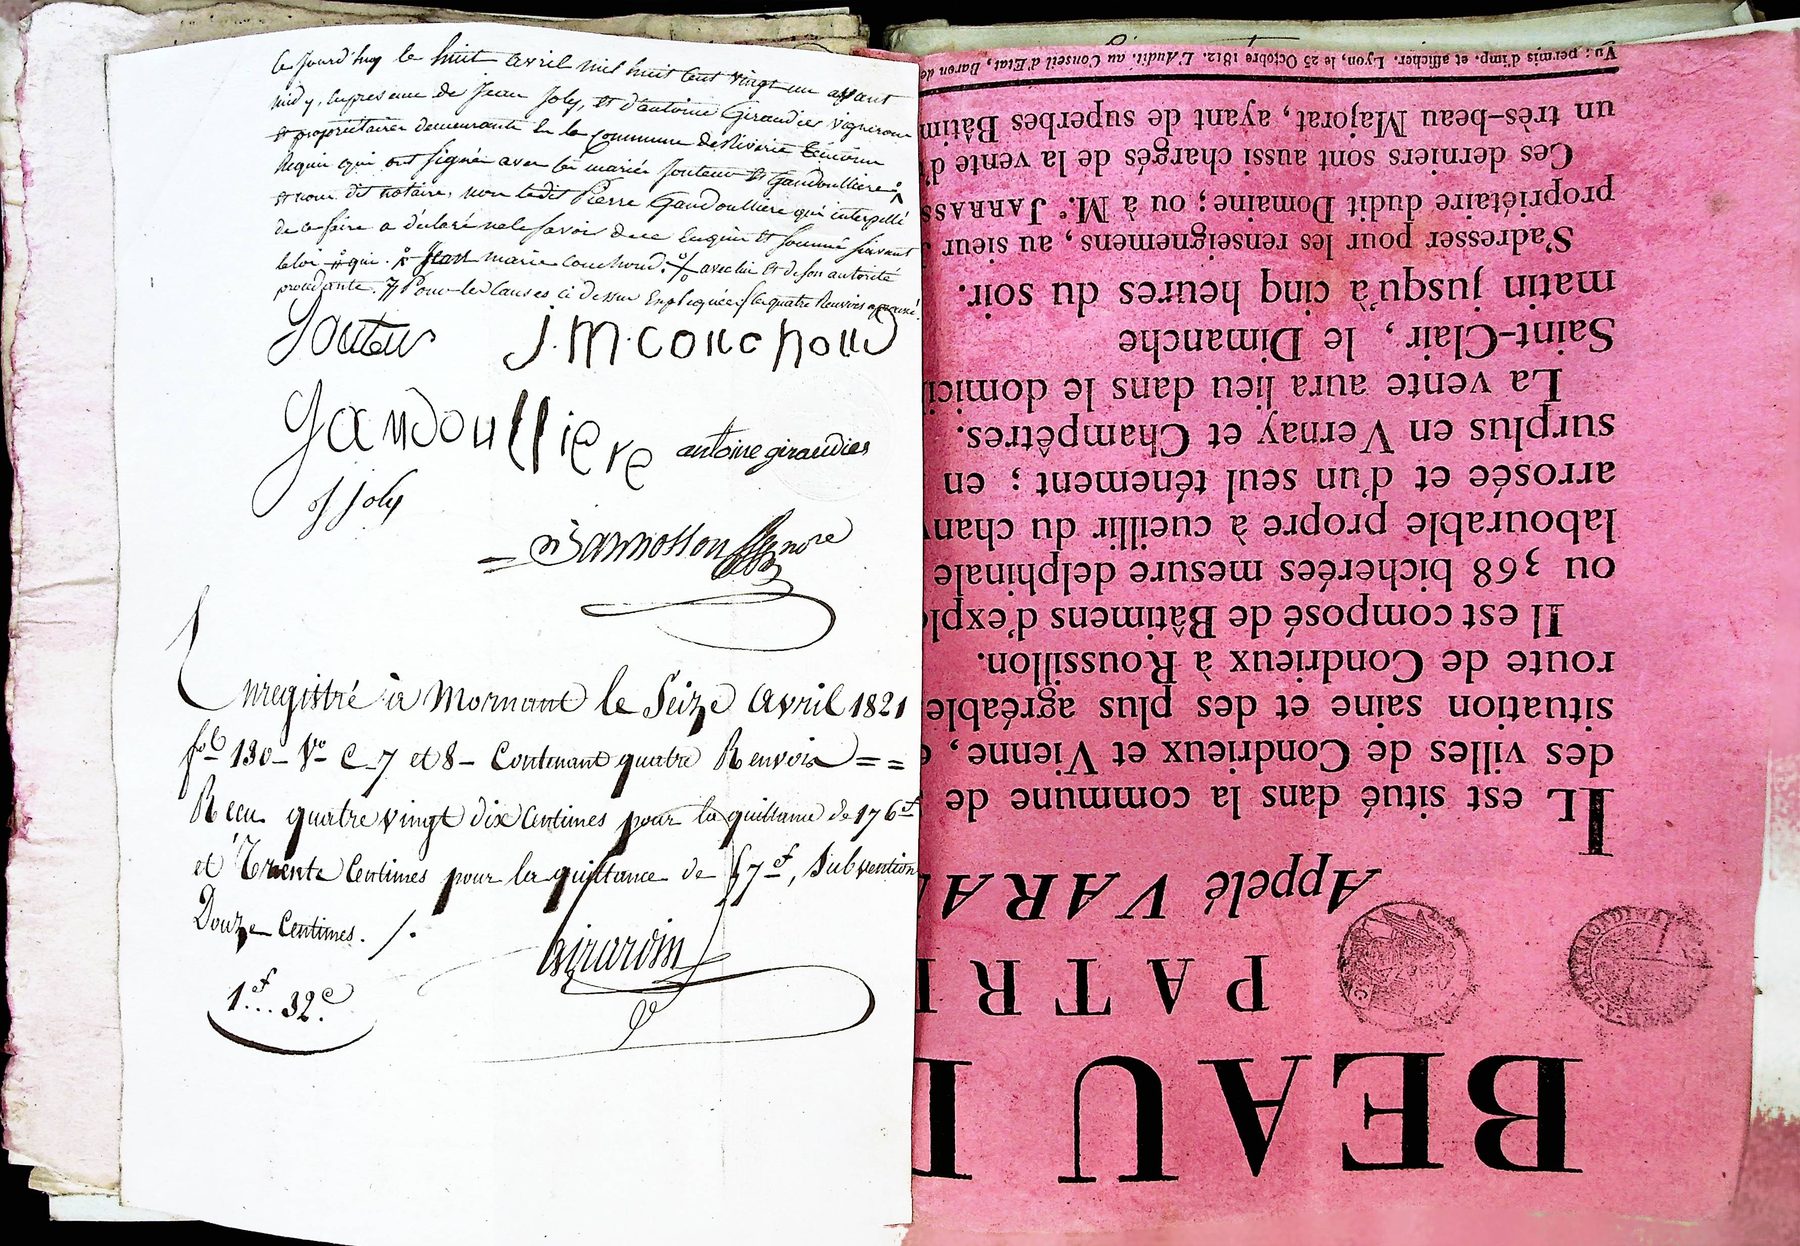 ce jourd'huy le huit avril mil huit cent vingt un avant
midy, en presence de Jean Joly, et d'antoine Giraudier vignerons
et propriétaires demeurants en la commune de Riverie témoins
Requis qui ont signé avec les mariés Jouteur et Gandoulliere
et nous dit notaire, non ledit Pierre Gandoulliere qui interpellé
de ce faire a déclaré ne le savoir de ce enquis et sommé suivant
la loi qui. Jean marie couchoud. avec lui et de son autorité
procédante. Pour les causes ci dessus les quatre Renvoies
Jouteur J.M.couchoud
Gandoulliere antoine giraudier
J Joly
nore
Enregistré à Mornant le Seize avril 1821
fol 130 Vo C 7 et 8 - Contenant quatre Renvois ==
Reçu quatre vingt dix centimes pour la quittance de 176 f
et Trente Centimes pour la quittance de 57 f, Subvention
Douze Centimes. /.
Girardin
1 f... 32 c
BEAU
PATRI
Appelé VARA
IL est situé dans la commune de
des villes de Condrieux et Vienne,
situation saine et des plus agréable
route de Condrieux à Roussillon.
Il est composé de Bâtimens d'explo
ou 368 bicherées mesure delphinale
labourable propre à cueillir du chanv
arrosée et d'un seul ténement ; en
surplus en Vernay et Champêtres.
La vente aura lieu dans le domici
Saint-Clair, le Dimanche
matin jusqu'à cinq heures du soir.
S'adresser pour les renseignemens, au sieur
propriétaire dudit Domaine ; ou à M.e JARRASS
Ces derniers sont aussi chargés de la vente d'
un très-beau Majorat, ayant de superbes Bâtim
Vu : permis d'imp. et afficher. Lyon, le 25 Octobre 1812. L'Audit. au Conseil d'Etat, Baron de